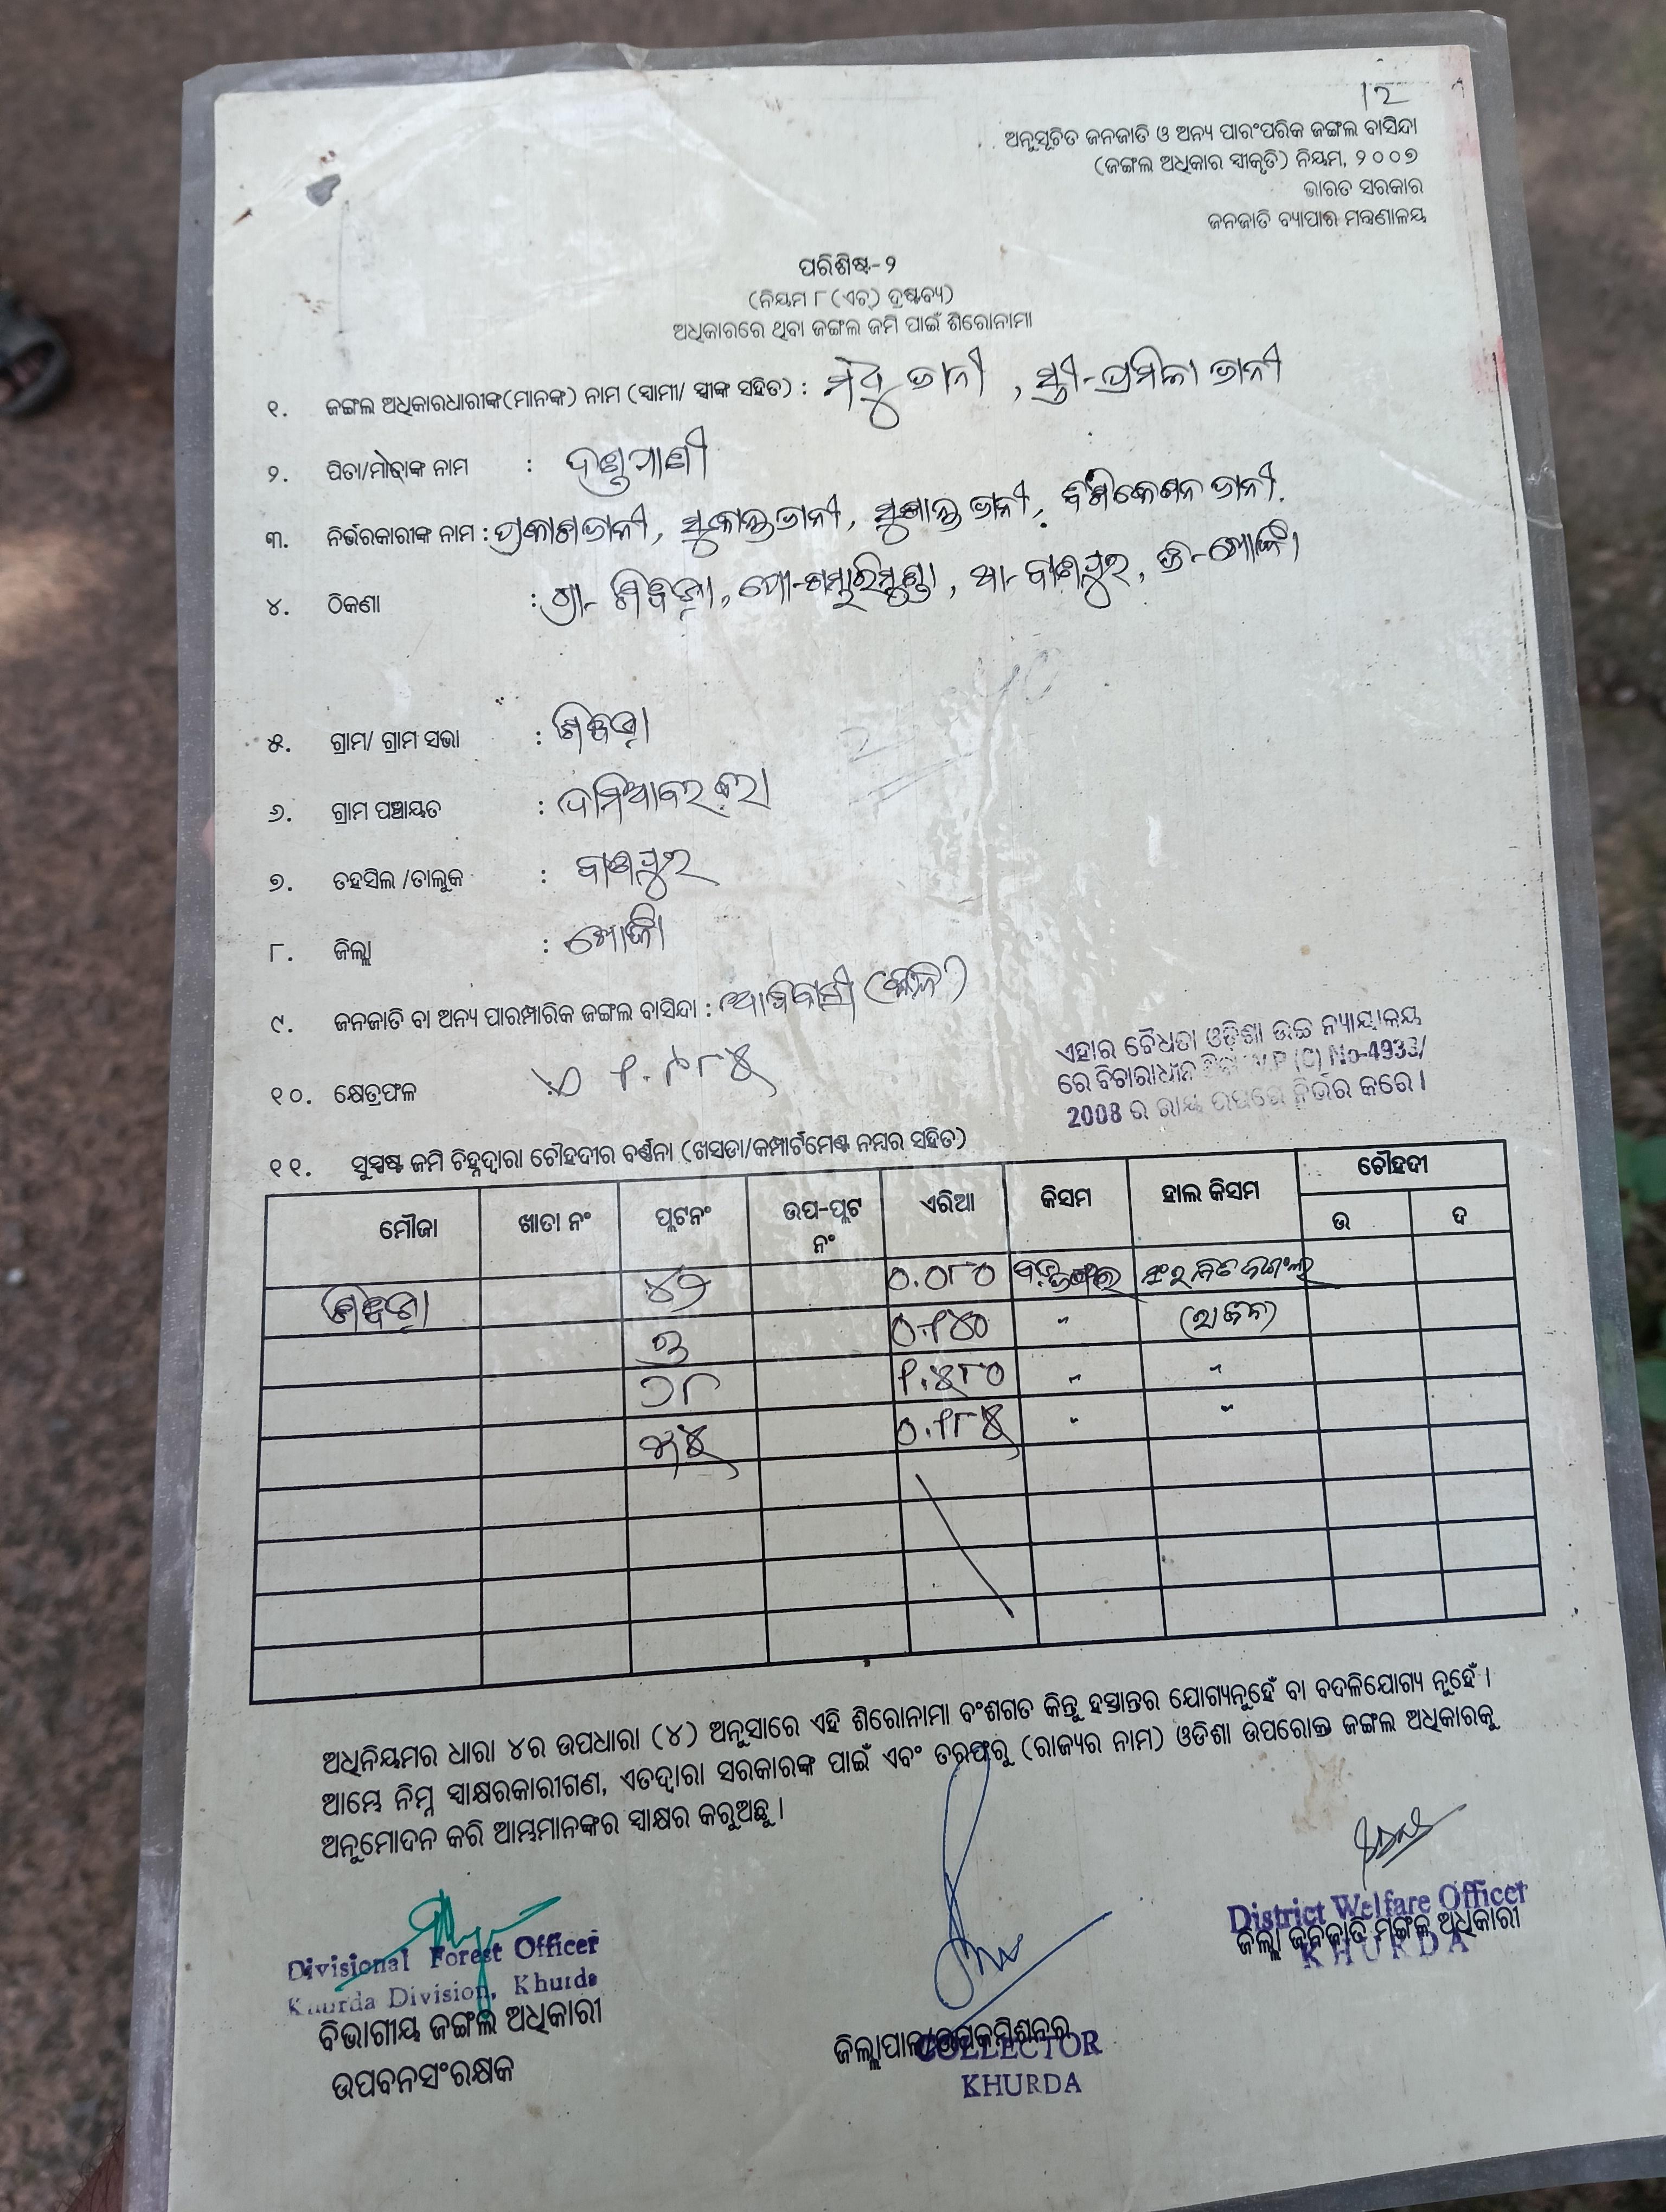 12
ଅନୁସୂଚିତ ଜନଜାତି ଓ ଅନ୍ୟ ପାରଂପରିକ ଜଙ୍ଗଲ ବାସିନ୍ଦା
(ଜଙ୍ଗଲ ଅଧିକାର ସ୍ୱୀକୃତି) ନିୟମ, ୨୦୦୭
ଭାରତ ସରକାର
ଜନଜାତି ବ୍ୟାପାର ମନ୍ତ୍ରଣାଳୟ
ପରିଶିଷ୍ଟ-୨
(ନିୟମ ୮(ଏଚ୍) ଦ୍ରଷ୍ଟବ୍ୟ)
ଅଧିକାରରେ ଥିବା ଜଙ୍ଗଲ ଜମି ପାଇଁ ଶିରୋନାମା
୧. ଜଙ୍ଗଲ ଅଧିକାରଧାରୀଙ୍କ(ମାନଙ୍କ) ନାମ (ସ୍ୱାମୀ/ ସ୍ତ୍ରୀଙ୍କ ସହିତ) : ମଧୁ ଭାନୀ , ସ୍ତ୍ରୀ-ପ୍ରମିଳା ଭାନୀ
୨. ପିତା/ମାତାଙ୍କ ନାମ :
୩. ନିର୍ଭରକାରୀଙ୍କ ନାମ : ପ୍ରକାଶ ଭାନୀ, ସୁକାନ୍ତ ଭାନୀ, ସୁଶାନ୍ତ ଭାନୀ, ଭାନୀ.
୪. ଠିକଣା : ଗ୍ରା- ପୋ- ଥା-ବାଣପୁର, ଜି-ଖୋର୍ଦ୍ଧା
୫. ଗ୍ରାମ/ ଗ୍ରାମ ସଭା :
୬. ଗ୍ରାମ ପଞ୍ଚାୟତ :
୭. ତହସିଲ /ତାଲୁକ : ବାଣପୁର
୮. ଜିଲ୍ଲା : ଖୋର୍ଦ୍ଧା
୯. ଜନଜାତି ବା ଅନ୍ୟ ପାରମ୍ପାରିକ ଜଙ୍ଗଲ ବାସିନ୍ଦା : ଆଦିବାସୀ
୧୦. କ୍ଷେତ୍ରଫଳ ୧.୯୮୫
ଏହାର ବୈଧତା ଓଡ଼ିଶା ଉଚ୍ଚ ନ୍ୟାୟାଳୟ
ରେ ବିଚାରାଧୀନ W.P (C) No-4933/
2008 ର ରାୟ ଉପରେ ନିର୍ଭର କରେ ।
୧୧. ସୁସ୍ପଷ୍ଟ ଜମି ଚିହ୍ନଦ୍ୱାରା ଚୌହଦୀର ବର୍ଣ୍ଣନା (ଖସଡା/କମ୍ପାର୍ଟମେଣ୍ଟ ନମ୍ବର ସହିତ)
ମୌଜା ଖାତା ନଂ ପ୍ଲଟନଂ ଉପ-ପ୍ଲଟ ନଂ ଏରିଆ କିସମ ହାଲ କିସମ ଚୌହଦୀ
ଉ ଦ
୪୭ ୦.୦୮୦
୩ ୦.୧୪୦ "
୨୮ ୧.୫୮୦ " "
୦.୧୮୫ " "
ଅଧିନିୟମର ଧାରା ୪ର ଉପଧାରା (୪) ଅନୁସାରେ ଏହି ଶିରୋନାମା ବଂଶଗତ କିନ୍ତୁ ହସ୍ତାନ୍ତର ଯୋଗ୍ୟନୁହେଁ ବା ବଦଳିଯୋଗ୍ୟ ନୁହେଁ ।
ଆମ୍ଭେ ନିମ୍ନ ସ୍ୱାକ୍ଷରକାରୀଗଣ, ଏତଦ୍ୱାରା ସରକାରଙ୍କ ପାଇଁ ଏବଂ ତରଫରୁ (ରାଜ୍ୟର ନାମ) ଓଡିଶା ଉପରୋକ୍ତ ଜଙ୍ଗଲ ଅଧିକାରକୁ
ଅନୁମୋଦନ କରି ଆମ୍ଭମାନଙ୍କର ସ୍ୱାକ୍ଷର କରୁଅଛୁ ।
Divisional Forest Officer
Khurda Division, Khurda
ବିଭାଗୀୟ ଜଙ୍ଗଲ ଅଧିକାରୀ
ଉପବନସଂରକ୍ଷକ
ଜିଲ୍ଲାପାଳ/ଉପକମିଶନର
COLLECTOR
KHURDA
District Welfare Officer
ଜିଲ୍ଲା ଜନଜାତି ମଙ୍ଗଳ ଅଧିକାରୀ
KHURDA